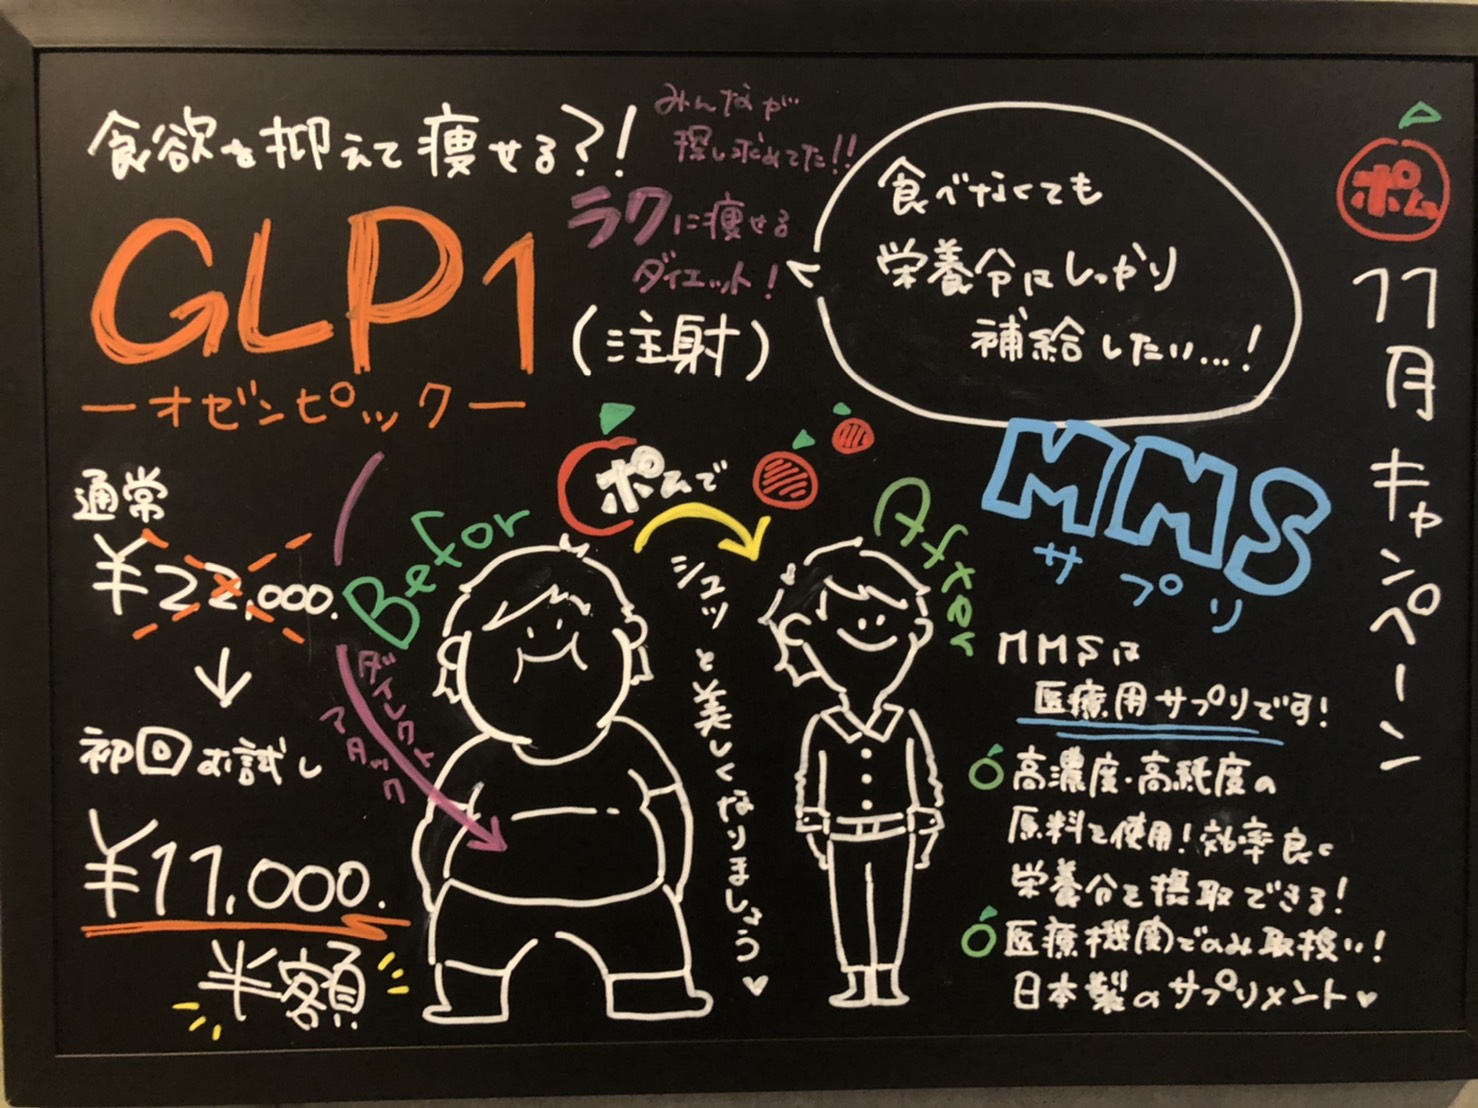 食欲を抑えて痩せる?!
みんなが
探し求めてた!!
ラクに痩せる
ダイエット!
GLP1
(注射)
ーオゼンピックー
食べなくても
栄養分はしっかり
補給したい...!
ポム
11月キャンペーン
通常
¥22,000.
初回お試し
¥11,000.
半額
ダイレクト
アタック
Befor
ポムで
シュッと美しくなりましょう♥
After
MMS
サプリ
MMSは
医療用サプリです!
高濃度・高純度の
原料を使用!効率良く
栄養分を摂取できる!
医療機関でのみ取扱い!
日本製のサプリメント♥